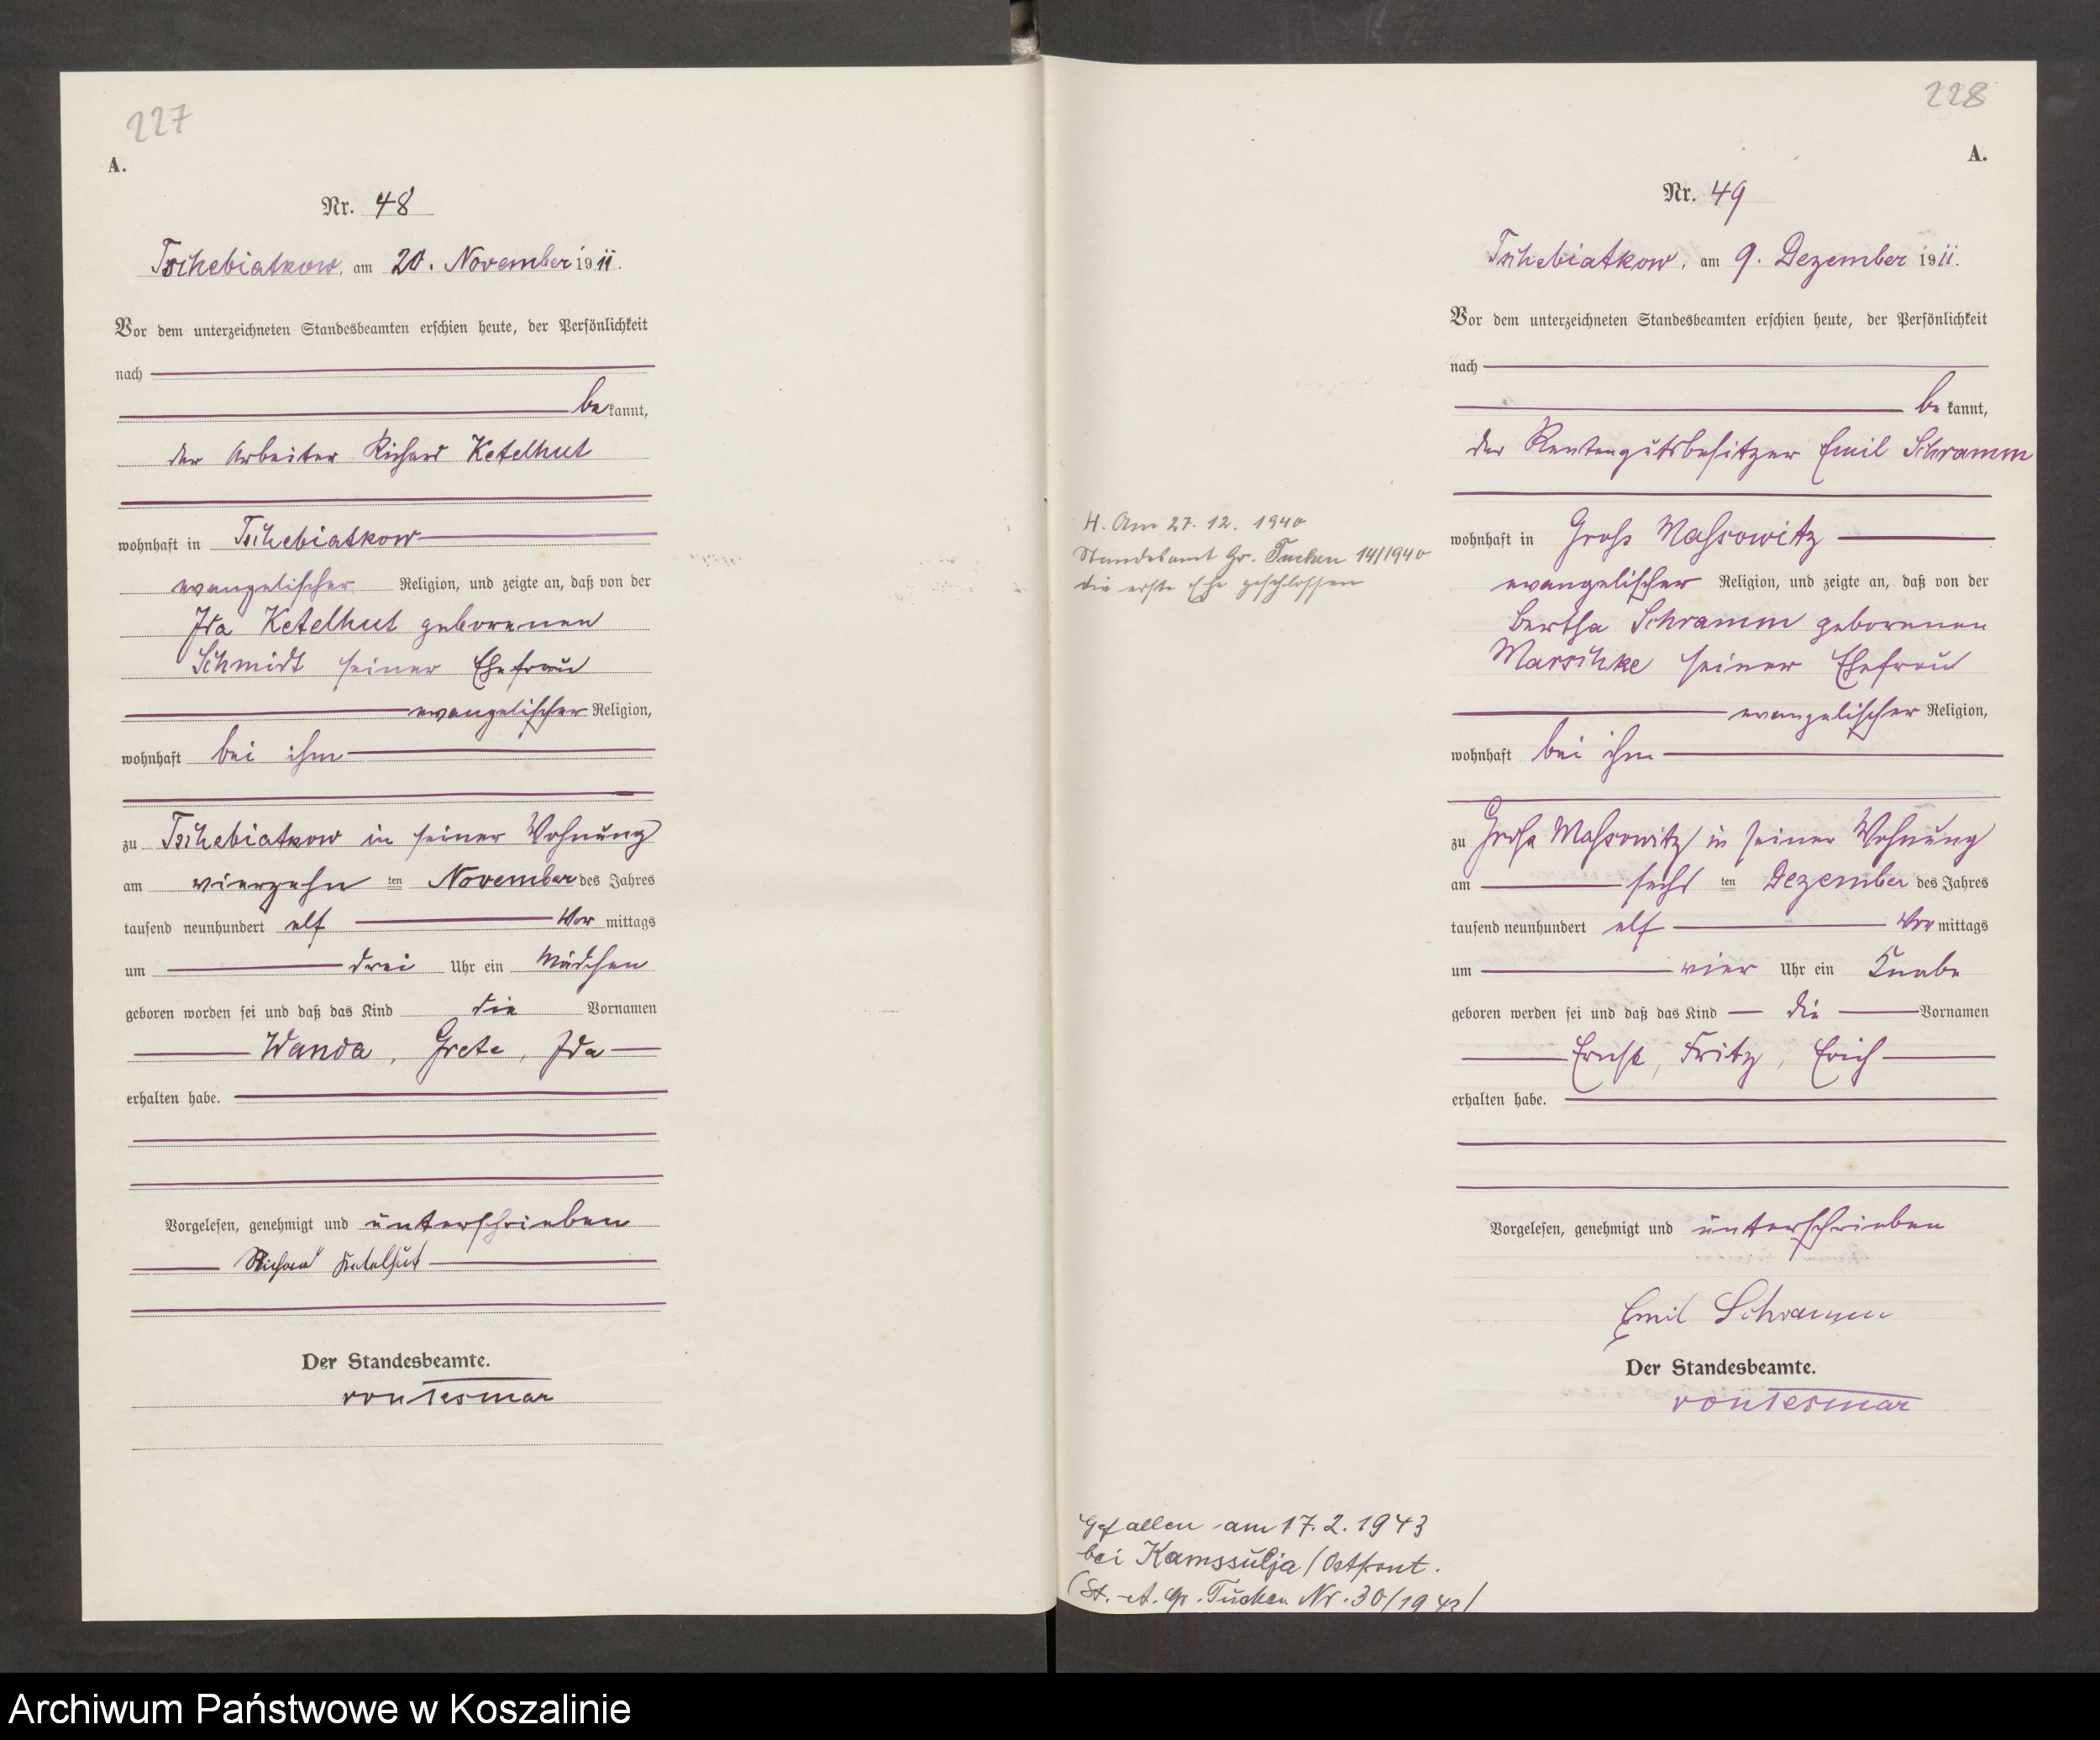 227
A.
Nr. 48
Tschebiatkow, am 20. November 1911.
Vor dem unterzeichneten Standesbeamten erschien heute, der Persönlichkeit
nach
be kannt,
der Arbeiter Richard Ketelhut
wohnhaft in Tschebiatkow
evangelischer Religion, und zeigte an, daß von der
Ida Ketelhut geborenen
Schmidt seiner Ehefrau
evangelischer Religion,
wohnhaft bei ihm
zu Tschebiatkow in seiner Wohnung
am vierzehn ten November des Jahres
tausend neunhundert elf Vor mittags
um drei Uhr ein Mädchen
geboren worden sei und daß das Kind die Vornamen
Wanda, Grete, Ida
erhalten habe.
Vorgelesen, genehmigt und unterschrieben
Richard Ketelhut
Der Standesbeamte.
von Tesmar
228
A.
Nr. 49
Tschebiatkow, am 9. Dezember 1911.
Vor dem unterzeichneten Standesbeamten erschien heute, der Persönlichkeit
nach
be kannt,
der Rentengutsbesitzer Emil Schramm
wohnhaft in Gross Massowitz
evangelischer Religion, und zeigte an, daß von der
Bertha Schramm geborenen
Marschke seiner Ehefrau
evangelischer Religion,
wohnhaft bei ihm
zu Gross Massowitz in seiner Wohnung
am sechs ten Dezember des Jahres
tausend neunhundert elf Vor mittags
um vier Uhr ein Knabe
geboren werden sei und daß das Kind die Vornamen
Ernst, Fritz, Erich
erhalten habe.
Vorgelesen, genehmigt und unterschrieben
Emil Schramm
Der Standesbeamte.
von Tesmar
H. Am 27. 12. 1940
Standesamt Gr. Tuchen 14/1940
die erste Ehe geschlossen
Gefallen am 17.2.1943
bei Kamssulja / Ostfront.
(St.-A. Gr. Tuchen Nr. 30/1943)
Archiwum Państwowe w Koszalinie